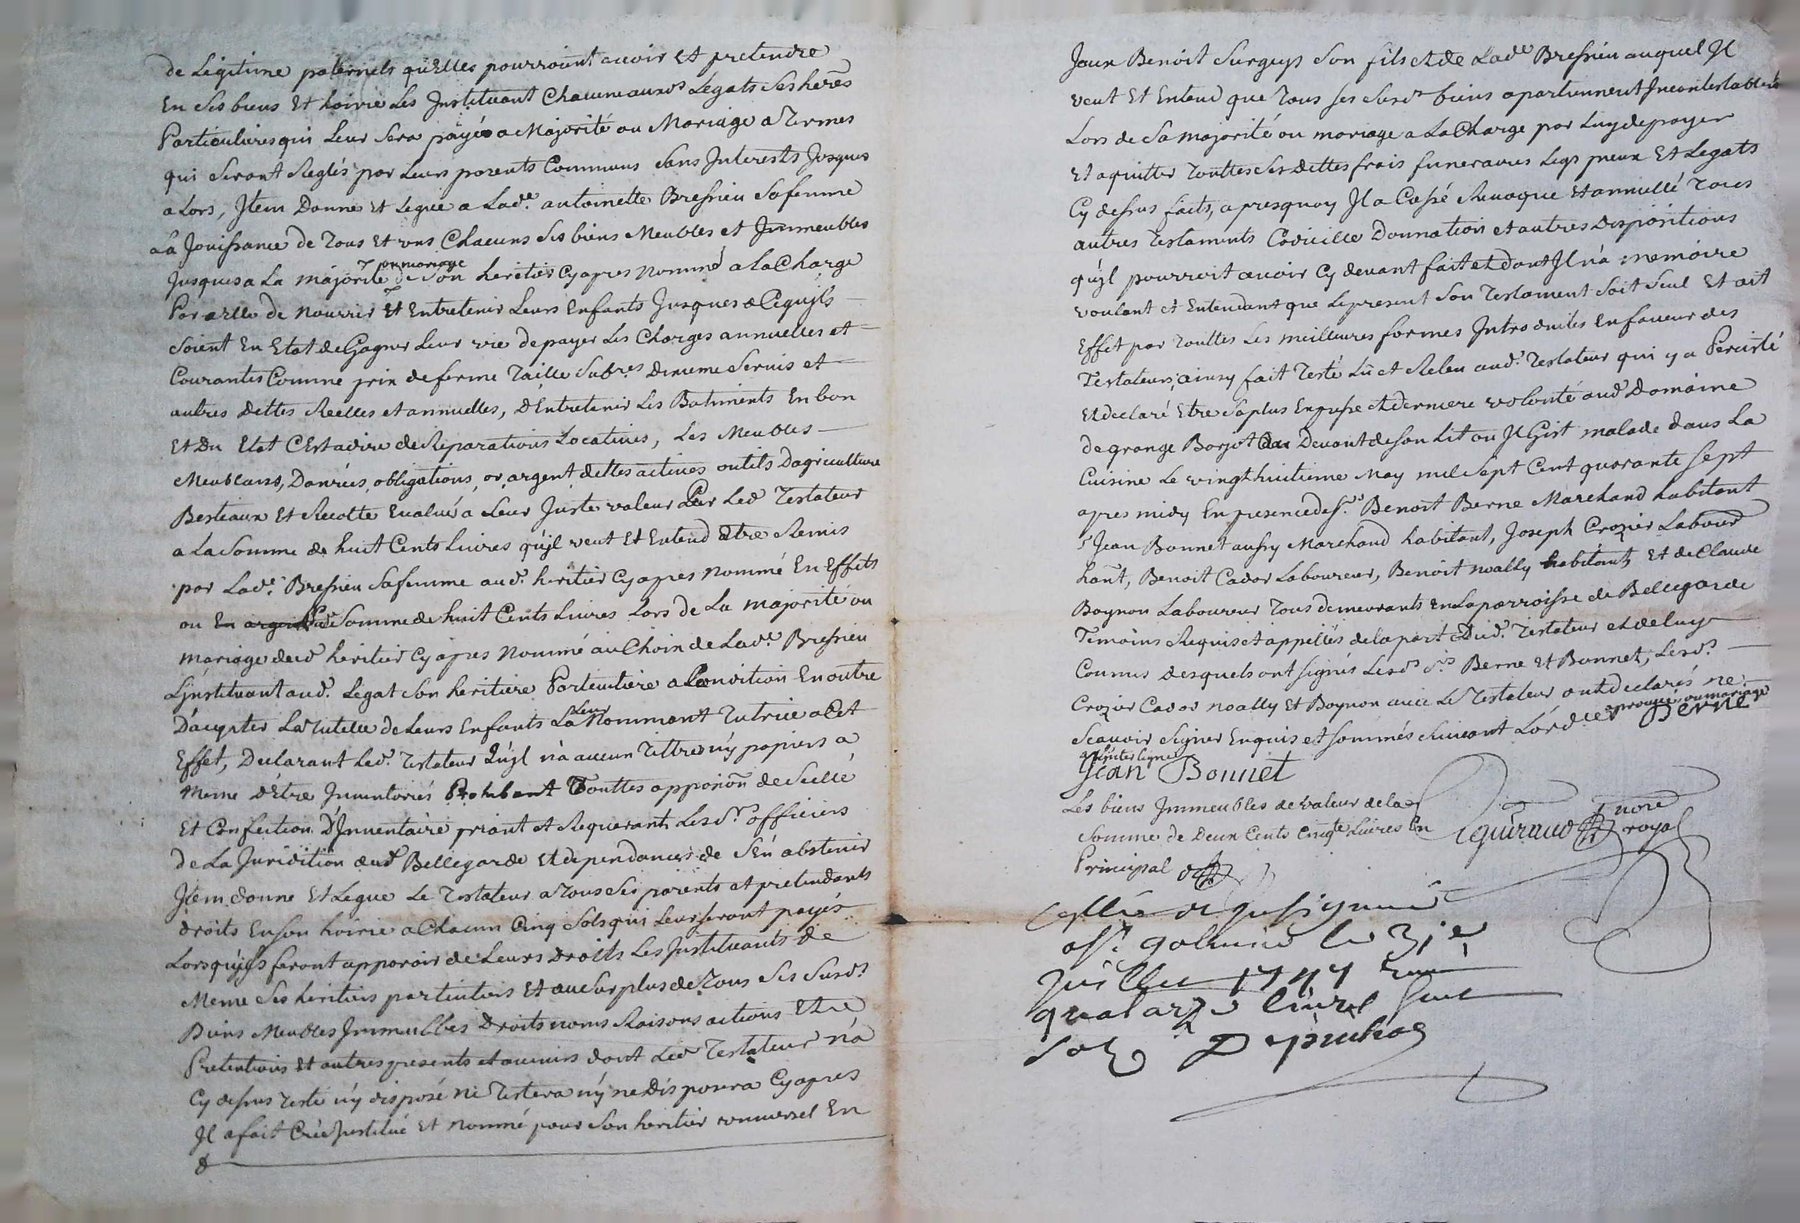 de Légitime paternels qu'Elles pourroient avoir Et pretendre
En Ses biens Et hoirie Les Instituant Chacune auxd Legats Ses herēs
Particulieres qui Leur Sera payé a Majorité ou Mariage a Termes
qui Seront Reglés par Leurs parents Communs Sans Interests Jusques
a Lors, Item Donne et Legue a Lad.e antoinette Bressieu Sa femme
La Jouissance de Tous Et uns Chacuns Ses biens Meubles et Immeubles
ou mariage
Jusques a La majorité de Son heritier Cy apres Nommé a la Charge
Par elle de Nourrir et Entretenir Leurs Enfants Jusques a Cequ'jls
Soient En Etat de Gagner Leur vie de payer Les Charges annuelles et
Courantes Comme prix de ferme Taille Subs.es dixieme Servis et
autres dettes Réelles et annuelles, d'Entretenir Les Batiments En bon
Et Du Etat C'est a dire de Reparations Locatives, Les Meubles
Meublans, Danrées, obligations, or, argent dettes actives outils D'agriculture
Bestiaux Et Recolte Evalué a Leur Juste valeur Par Led Testateur
a La Somme de huit Cents Livres qu'jl veut Et Entend Etre Remis
par Lad.e Bressieu Sa femme aud. heritier Cy apres Nommé En Effets
ou En argent Lad Somme de huit Cents Livres Lors de La Majorité ou
Mariage dud heritier Cy apres Nommé au Choix de Lad.e Bressieu
L'jnstituant aud. Legat Son heritiere Particuliere a Condition En outre
Leur
D'accepter La Tutelle de Leurs Enfants La Nommant Tutrice a Cet
Effet, Declarant Led. Testateur Qu'jl n'a aucun Tittre n'y papiers a
Meme d'être Inventoriés Prohibant Touttes apposiōn de Scellé
Et Confection D'Inventaire priant et Requerant Lesd.rs officiers
de La Juridition dud Bellegarde Et dependances de S'En abstenir
Item donne Et Legue Le Testateur a Tous Ses parents et pretendants
droits En Son hoirie a Chacun Cinq Sols qui Leur Seront payés
Lorsqu'jls feront apparoir de Leurs Droits Les Instituants de
Meme Ses heritiers particuliers Et au Surplus de Tous Ses Susd.s
Biens Meubles Immeubles Droits noms Raisons actions Et de
Pretentions Et autres presents et avenirs dont Led Testateur n'a
Cy dessus Testé n'y disposé ni Testera n'y ne Disposera Cy apres
Jl a fait Créé Jnstitué Et Nommé pour Son heritier universel En
Jean Benoit Surgeys Son fils et de Lad.e Bressieu auquel Jl
veut Et Entend que Tous Ses Susd.s biens apartiennent Incontestablem.t
Lors de Sa majorité ou mariage a La Charge par Luy de payer
Et aquitter Touttes Ses Dettes frais funeraires Legs pieux Et Legats
Cy dessus faits, apres quoy Jl a Cassé Revoque Et annullé Tous
autres Testaments Codicille Donnations et autres Dispositions
qu'jl pourroit avoir Cy devant fait et dont Jl n'a memoire
voulant et Entendant que Le present Son Testament Soit Seul Et ait
Effet par Touttes Les meilleures formes Introduites En faveur des
Testateurs, ainsy fait Testé Lû et Releu aud. Testateur qui y a Percisté
Et declaré Etre Sa plus Expresse Et derniere volonté aud Domaine
de grange Borjot Devant de Son Lit ou Jl Gist malade dans La
Cuisine Le vingt huitieme May mil Sept Cent quarante Sept
apres midy En presence de s.r Benoit Berne Marchand habitant
s.r Jean Bonnet aussy Marchand habitant, Joseph Crozier Labour
hañt, Benoit Cador Laboureur, Benoit noally habitants Et de Claude
Boynon Laboureur Tous demeurants En La parroisse de Bellegarde
Temoins Requis et appellés de la part Dud. Testateur et de luy
Connus desquels ont signés Lesd. srs Berne Et Bonnet, Lesd.s
Crozier Cador noally Et Boynon avec Le Testateur ont declarés ne
Scavoir Signer Enquis et Sommés Suivant L'ord.ce aprouvé ou mariage Berne
Jean Bonnet
Les biens Immeubles de valeur de la
Somme de Deux Cents Cinq.te Livres En
Principal
nore
royal
juillet 1747
quatorze livres